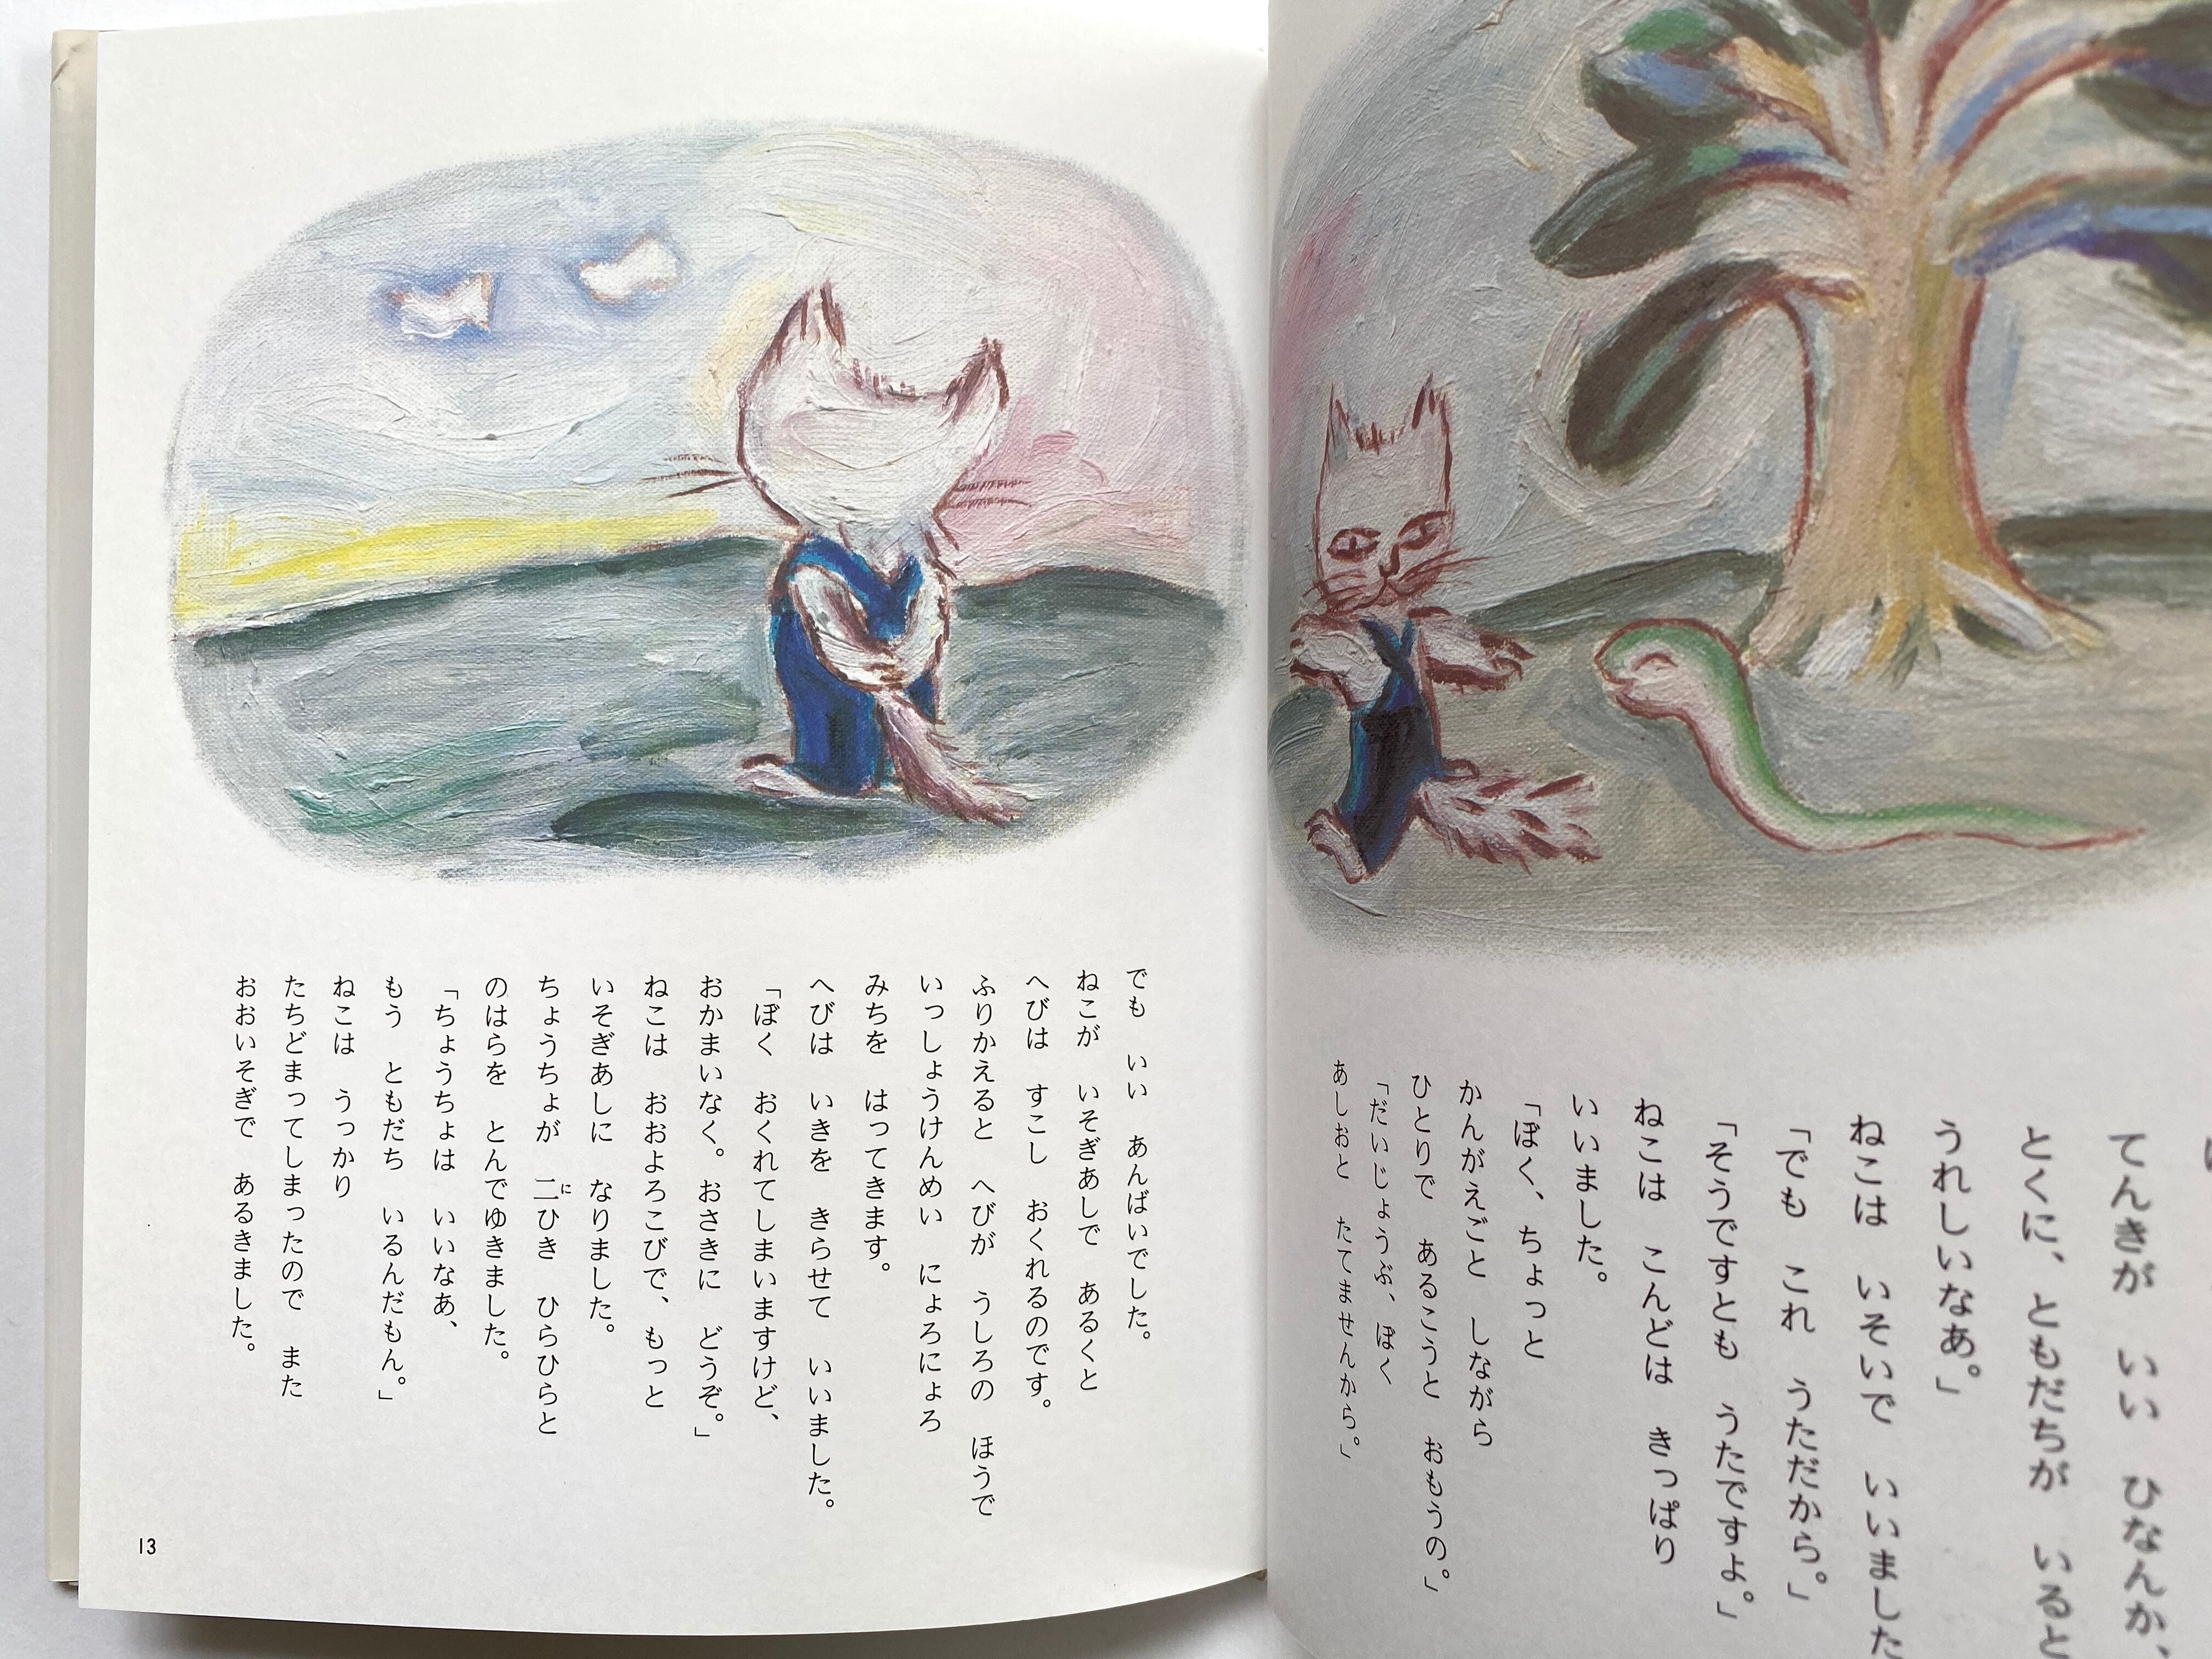 てんきが　いい　ひなんか、
とくに、ともだちが　いると
うれしいなあ。」
ねこは　いそいで　いいました
「でも　これ　うただから。」
「そうですとも　うたですよ。」
ねこは　こんどは　きっぱり
いいました。
「ぼく、ちょっと
かんがえごと　しながら
ひとりで　あるこうと　おもうの。」
「だいじょうぶ、ぼく
あしおと　たてませんから。」
でも　いい　あんばいでした。
ねこが　いそぎあしで　あるくと
へびは　すこし　おくれるのです。
ふりかえると　へびが　うしろの　ほうで
いっしょうけんめい　にょろにょろ
みちを　はってきます。
へびは　いきを　きらせて　いいました。
「ぼく　おくれてしまいますけど、
おかまいなく。おさきに　どうぞ。」
ねこは　おおよろこびで、もっと
いそぎあしに　なりました。
ちょうちょが　二ひき　ひらひらと
に
のはらを　とんでゆきました。
「ちょうちょは　いいなあ、
もう　ともだち　いるんだもん。」
ねこは　うっかり
たちどまってしまったので　また
おおいそぎで　あるきました。
13